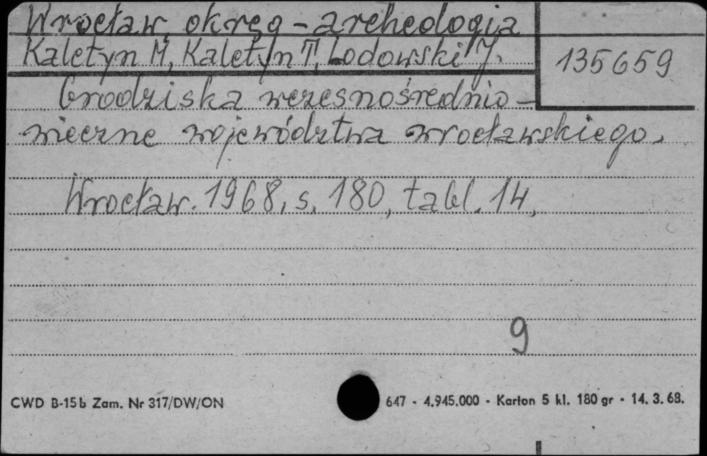 Wrocław, okręg - archeologia
Kaletyn M, Kaletyn T, Lodowski J.
135659
Grodziska wczesnośrednio-
wieczne województwa wrocławskiego.
Wrocław. 1968, s. 180, tabl. 14,
9
CWD B-15b Zam. Nr 317/DW/ON
647 - 4.945.000 - Karton 5 kl. 180 gr - 14. 3. 68.